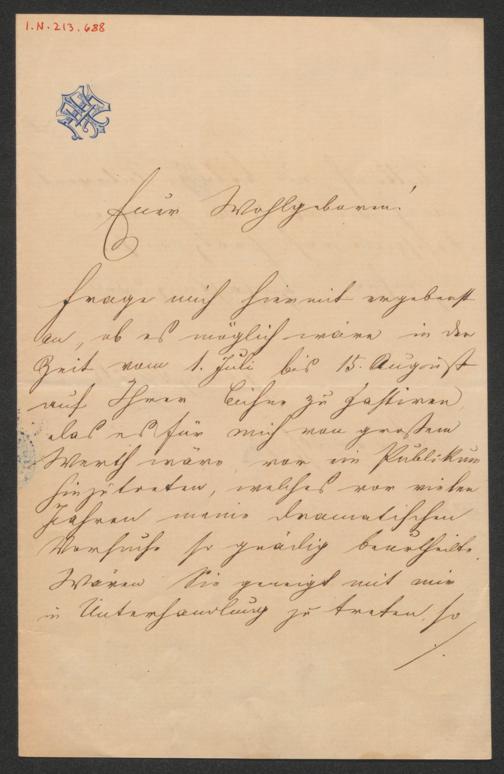 I.N. 213.688
Euer Wohlgeboren!
Frage mich hiermit ergebenst
an, ob es möglich wäre in der
Zeit vom 1. Juli bis 15. August
auf Ihrer Bühne zu gastiren,
das es für mich von großem
Werth wäre vor ein Publikum
hinzutreten, welches vor vielen
Jahren meine dramatischen
Versuche so gnädig beurtheilte.
Wären Sie geneigt mit mir
in Unterhandlung zu treten, so